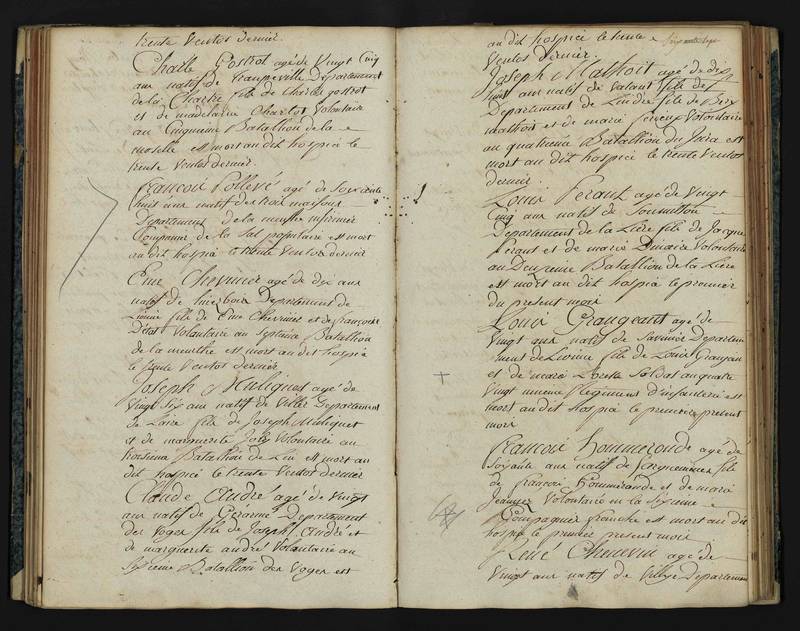 trente Ventos dernier.
Charle Gostrot agé de Vingt Cinq
ans natif de Departement
de la Chartre fils de Charles gostrot
et de madelaine Charlot Volontaire
au Cinquieme Batallion de la
moselle est mort au dit hospice le
trente Ventos dernier.
francoii Pollevé agé de Soixante
huit ans natif de trois maisons
Departement de la meurthe infirmier
Compagnie de la Sal populaire est mort
au dit hospice le trente Ventos dernier
Eme Chevrnier agé de dix ans
natif de Departement de
fils de Eme Chevrnier et de francoise
Volontaire au Septieme Batallion
de la meurthe est mort au dit hospice
le trente Ventos dernier
Joseph Muliguet agé de
Vingt Six ans natif de Viller Departement
de Loire fils de Joseph Muliguet
et de marguerite Joly Volontaire au
troisieme Batallion de Lin est mort au
dit hospice le trente Ventos dernier
Claude André agé de Vingt
ans natif de Gerarmé Departement
des Voges fils de Joseph André et
de marguerite andré Volontaire au
Sixieme Batallion des Voges est
au dit hospice le trente
Ventos dernier.
Joseph Mathoit agé de dix
huit ans natif de Valant fils de
Departement de Lindre fils de
mathoit et de marie Volontaire
au quatrieme Batallion du Jura est
mort au dit hospice le trente Ventos
dernier.
Louis Perant agé de Vingt
Cinq ans natif de
Departement de la Liere fils de Jacque
Perant et de marie Dmaire Volontaire
au Deuxieme Batallion de la Liere
est mort au dit hospice le premier
du present mois
Louis Grangeant agé de
Vingt ans natif de Departem
ment de fils de Louis Granjean
et de marie Lorette Soldat au quatre
Vingt neuvieme Regiment d'infanterie est
mort au dit hospice le premier present
mois
Francoii Hommeronde agé de
Soixante ans natif de fils
de francois Hommeronde et de marie
Volontaire en la Sixieme
Compagnier franche est mort au dit
hospice le premier present mois
René Chenevin agé de
Vingt ans natif de Departemen